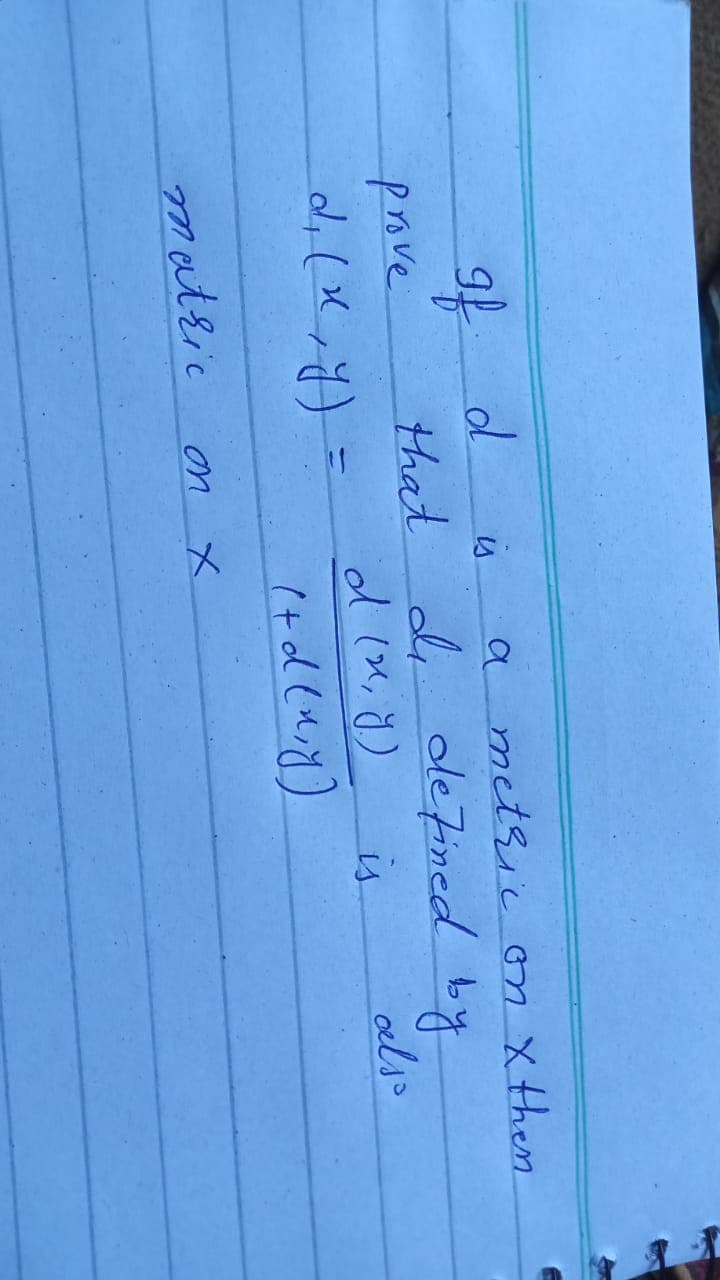 If d is a metric on X then
prove that d₁ defined by
d₁(x, y) = d(x, y) / 1+d(x, y) is also
matric on X